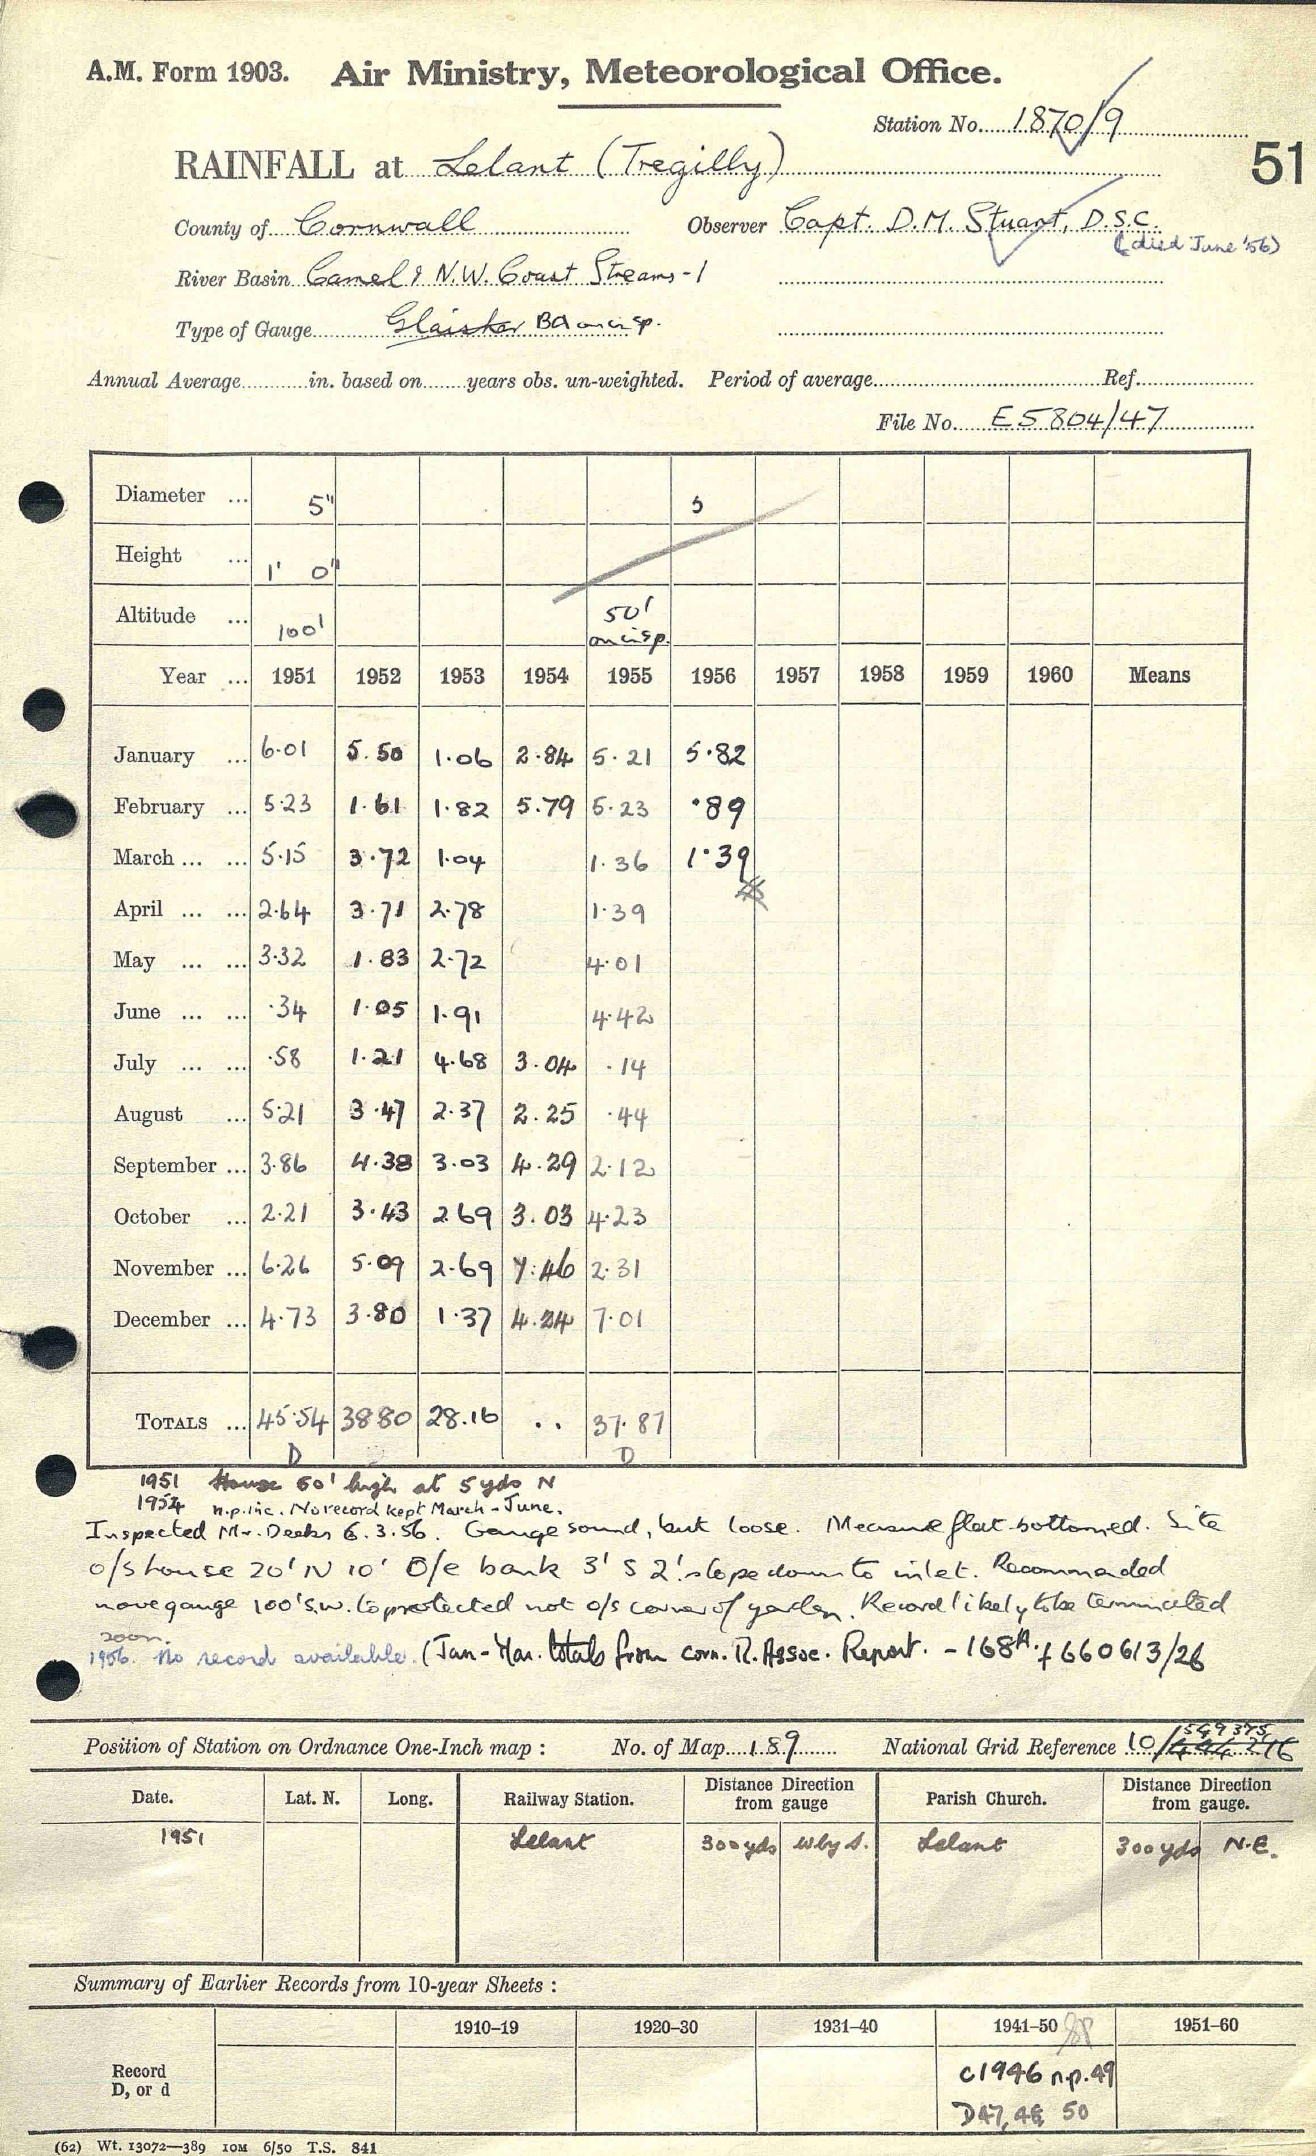 A.M. Form 1903. Air Ministry, Meteorological Office.
Station No. 1870/9
51
RAINFALL at Lelant (Tregilly)
County of Cornwall Observer Capt. D.M. Stuart, D.S.C.
(died June '56)
River Basin Camel & N.W. Coast Streams - 1
Type of Gauge Glaisher BA on insp.
Annual Average in. based on years obs. un-weighted. Period of average Ref.
File No. E5804/47
Diameter ... 5" 5
Height ... 1' 0"
Altitude ... 100' 50' on insp.
Year ... 1951 1952 1953 1954 1955 1956 1957 1958 1959 1960 Means
January ... 6.01 5.50 1.06 2.84 5.21 5.82
February ... 5.23 1.61 1.82 5.79 5.23 .89
March ... ... 5.15 3.72 1.04 1.36 1.39
April ... ... 2.64 3.71 2.78 1.39
May ... ... 3.32 1.83 2.72 4.01
June ... ... .34 1.05 1.91 4.42
July ... ... .58 1.21 4.68 3.04 .14
August ... 5.21 3.47 2.37 2.25 .44
September ... 3.86 4.38 3.03 4.29 2.12
October ... 2.21 3.43 2.69 3.03 4.23
November ... 6.26 5.09 2.69 7.46 2.31
December ... 4.73 3.80 1.37 4.24 7.01
TOTALS ... 45.54 38.80 28.16 .. 37.87
D D
1951 House 60' high at 5 yds N
1954 n.p. inc. No record kept March - June.
Inspected Mr. Deaks 6.3.56. Gauge sound, but loose. Measure flat-bottomed. Site
o/s house 20' N 10' O/e bank 3' S 2' slope down to inlet. Recommended
move gauge 100' S.W. to protected not o/s corner of garden. Record likely to be terminated
soon.
1956. No record available. (Jan - Mar. totals from Corn. R. Assoc. Report. - 168A. f 660613/26
Position of Station on Ordnance One-Inch map : No. of Map 189 National Grid Reference 10/549 375
Date. Lat. N. Long. Railway Station. Distance Direction from gauge Parish Church. Distance Direction from gauge.
1951 Lelant 300 yds W by S. Lelant 300 yds N.E.
Summary of Earlier Records from 10-year Sheets :
1910-19 1920-30 1931-40 1941-50 1951-60
Record D, or d
c1946 n.p. 49
D47, 48, 50
(62) Wt. 13072—389 10M 6/50 T.S. 841